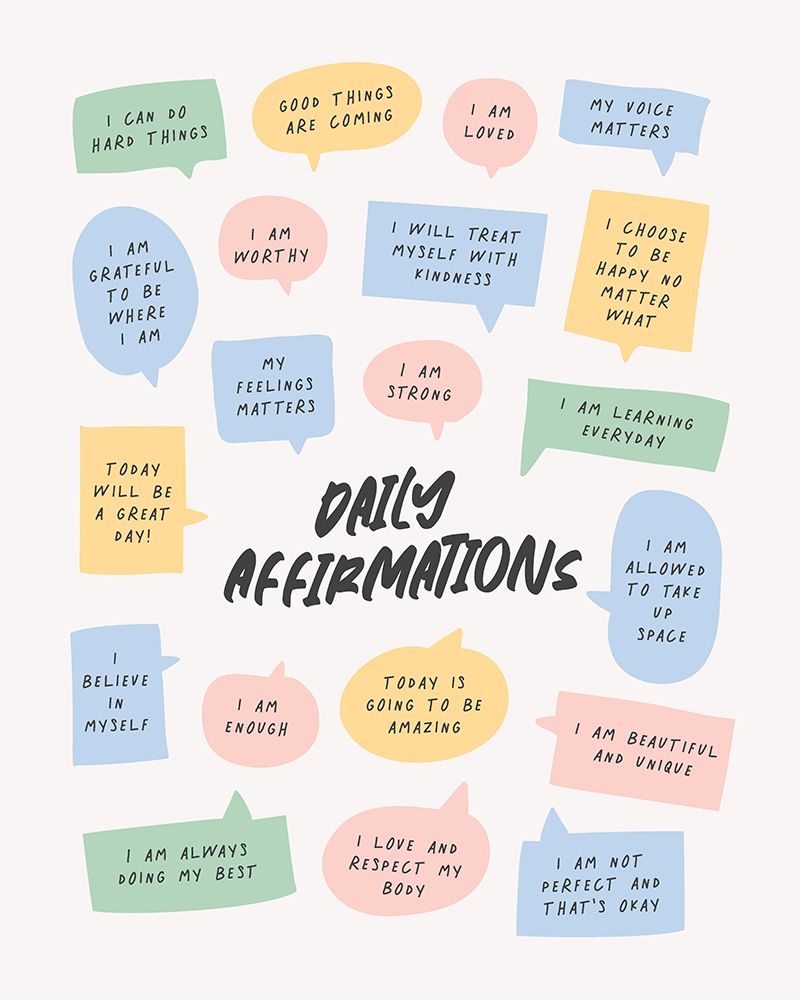 I CAN DO
HARD THINGS
GOOD THINGS
ARE COMING
I AM
LOVED
MY VOICE
MATTERS
I AM
GRATEFUL
TO BE
WHERE
I AM
I AM
WORTHY
I WILL TREAT
MYSELF WITH
KINDNESS
I CHOOSE
TO BE
HAPPY NO
MATTER
WHAT
MY
FEELINGS
MATTERS
I AM
STRONG
I AM LEARNING
EVERYDAY
TODAY
WILL BE
A GREAT
DAY!
DAILY
AFFIRMATIONS
I AM
ALLOWED
TO TAKE
UP
SPACE
I
BELIEVE
IN
MYSELF
I AM
ENOUGH
TODAY IS
GOING TO BE
AMAZING
I AM BEAUTIFUL
AND UNIQUE
I AM ALWAYS
DOING MY BEST
I LOVE AND
RESPECT MY
BODY
I AM NOT
PERFECT AND
THAT'S OKAY